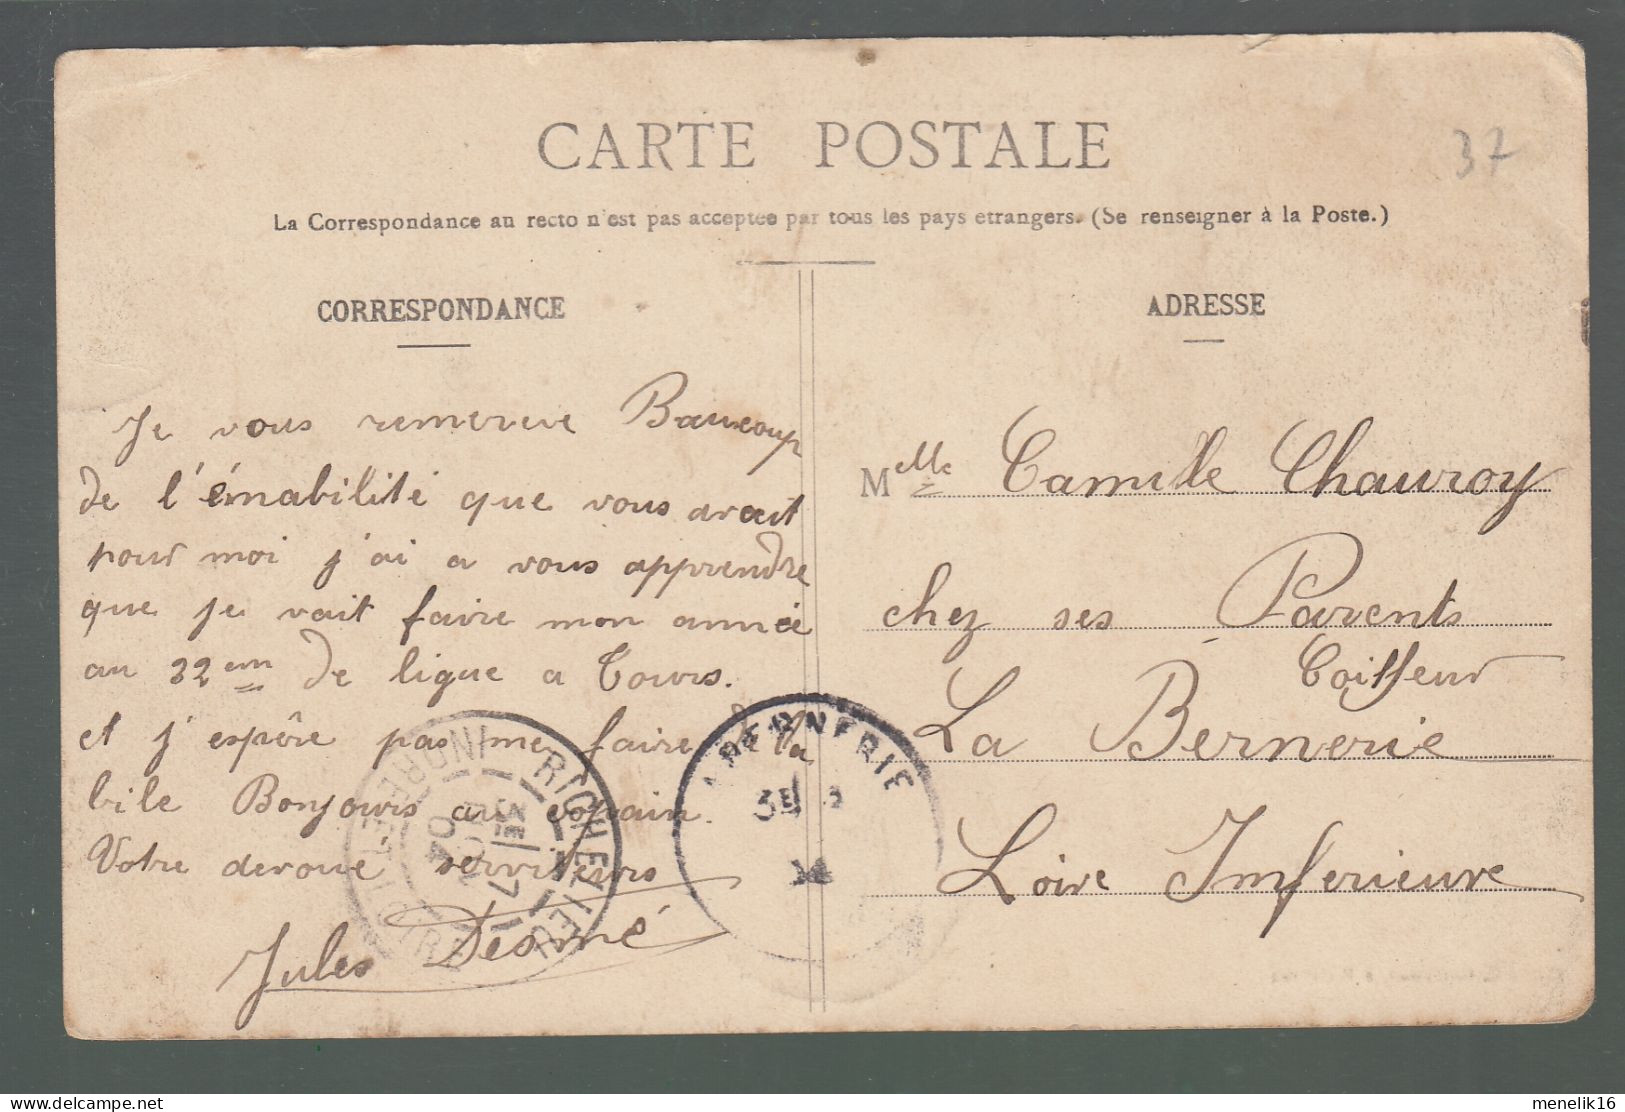 CARTE POSTALE
37
La Correspondance au recto n'est pas acceptée par tous les pays étrangers. (Se renseigner à la Poste.)
CORRESPONDANCE
Je vous remereve Baucoup
de l'émabilité que vous avait
pour moi j'ai a vous apprendre
que je vait faire mon année
au 32 em de ligue a Tours.
et j'espère pas me faire de la
bile Bonjours au copain.
Votre deroué serviteurs
Jules Desmé
ADRESSE
Melle Camille Chauroy
chez ses Parents
Coiffeur
La Bernerie
Loire Inferieure
RICHELIEU
INDRE-ET-LOIRE
04
BERNERIE
menelik16